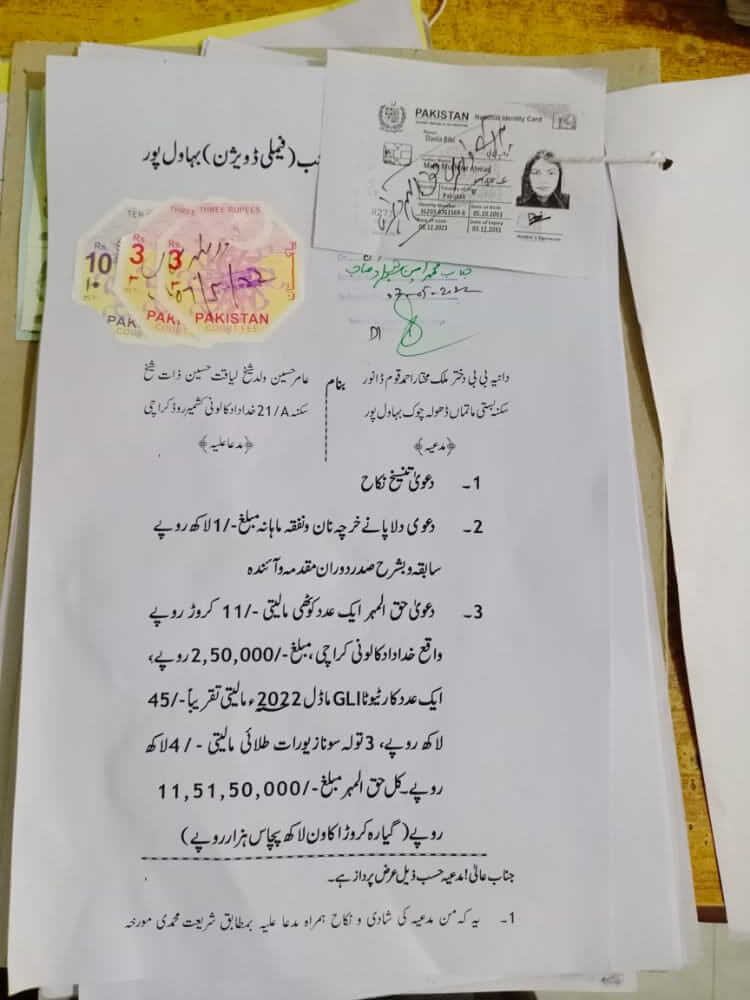 PAKISTAN National Identity Card
Name
Dania Bibi
Ahmad
Pakistan
Identity Number
Date of Birth
Date of Issue
Date of Expiry
Holder's Signature
(فیملی ڈویژن) بہاول پور
THREE THREE RUPEES
Rs. 10
Rs. 3
Rs. 3
PAK
PAK
PAKISTAN
COURT FEE
07-05-2022
دانیہ بی بی دختر ملک مختار احمد قوم ڈانور
سکنہ بستی ماتماں ڈھولہ چوک بہاول پور
﴿مدعیہ﴾
بنام
عامر حسین ولد شیخ لیاقت حسین ذات شیخ
سکنہ 21/A خداداد کالونی کشمیر روڈ کراچی
﴿مدعا علیہ﴾
1۔ دعویٰ تنسیخ نکاح
2۔ دعوی دلاپانے خرچہ نان و نفقہ ماہانہ مبلغ -/1 لاکھ روپے
سابقہ و بشرح صدر دوران مقدمہ و آئندہ
3۔ دعویٰ حق المہر ایک عدد کوٹھی مالیتی -/11 کروڑ روپے
واقع خداداد کالونی کراچی، مبلغ -/2,50,000 روپے،
ایک عدد کار ٹیوٹا GLI ماڈل 2022ء مالیتی تقریباً -/45
لاکھ روپے، 3 تولہ سونا زیورات طلائی مالیتی -/4 لاکھ
روپے۔ کل حق المہر مبلغ -/11,51,50,000
روپے (گیارہ کروڑ اکاون لاکھ پچاس ہزار روپے)
جناب عالی! مدعیہ حسب ذیل عرض پرداز ہے۔
1۔ یہ کہ من مدعیہ کی شادی و نکاح ہمراہ مدعا علیہ بمطابق شریعت محمدی مورخہ